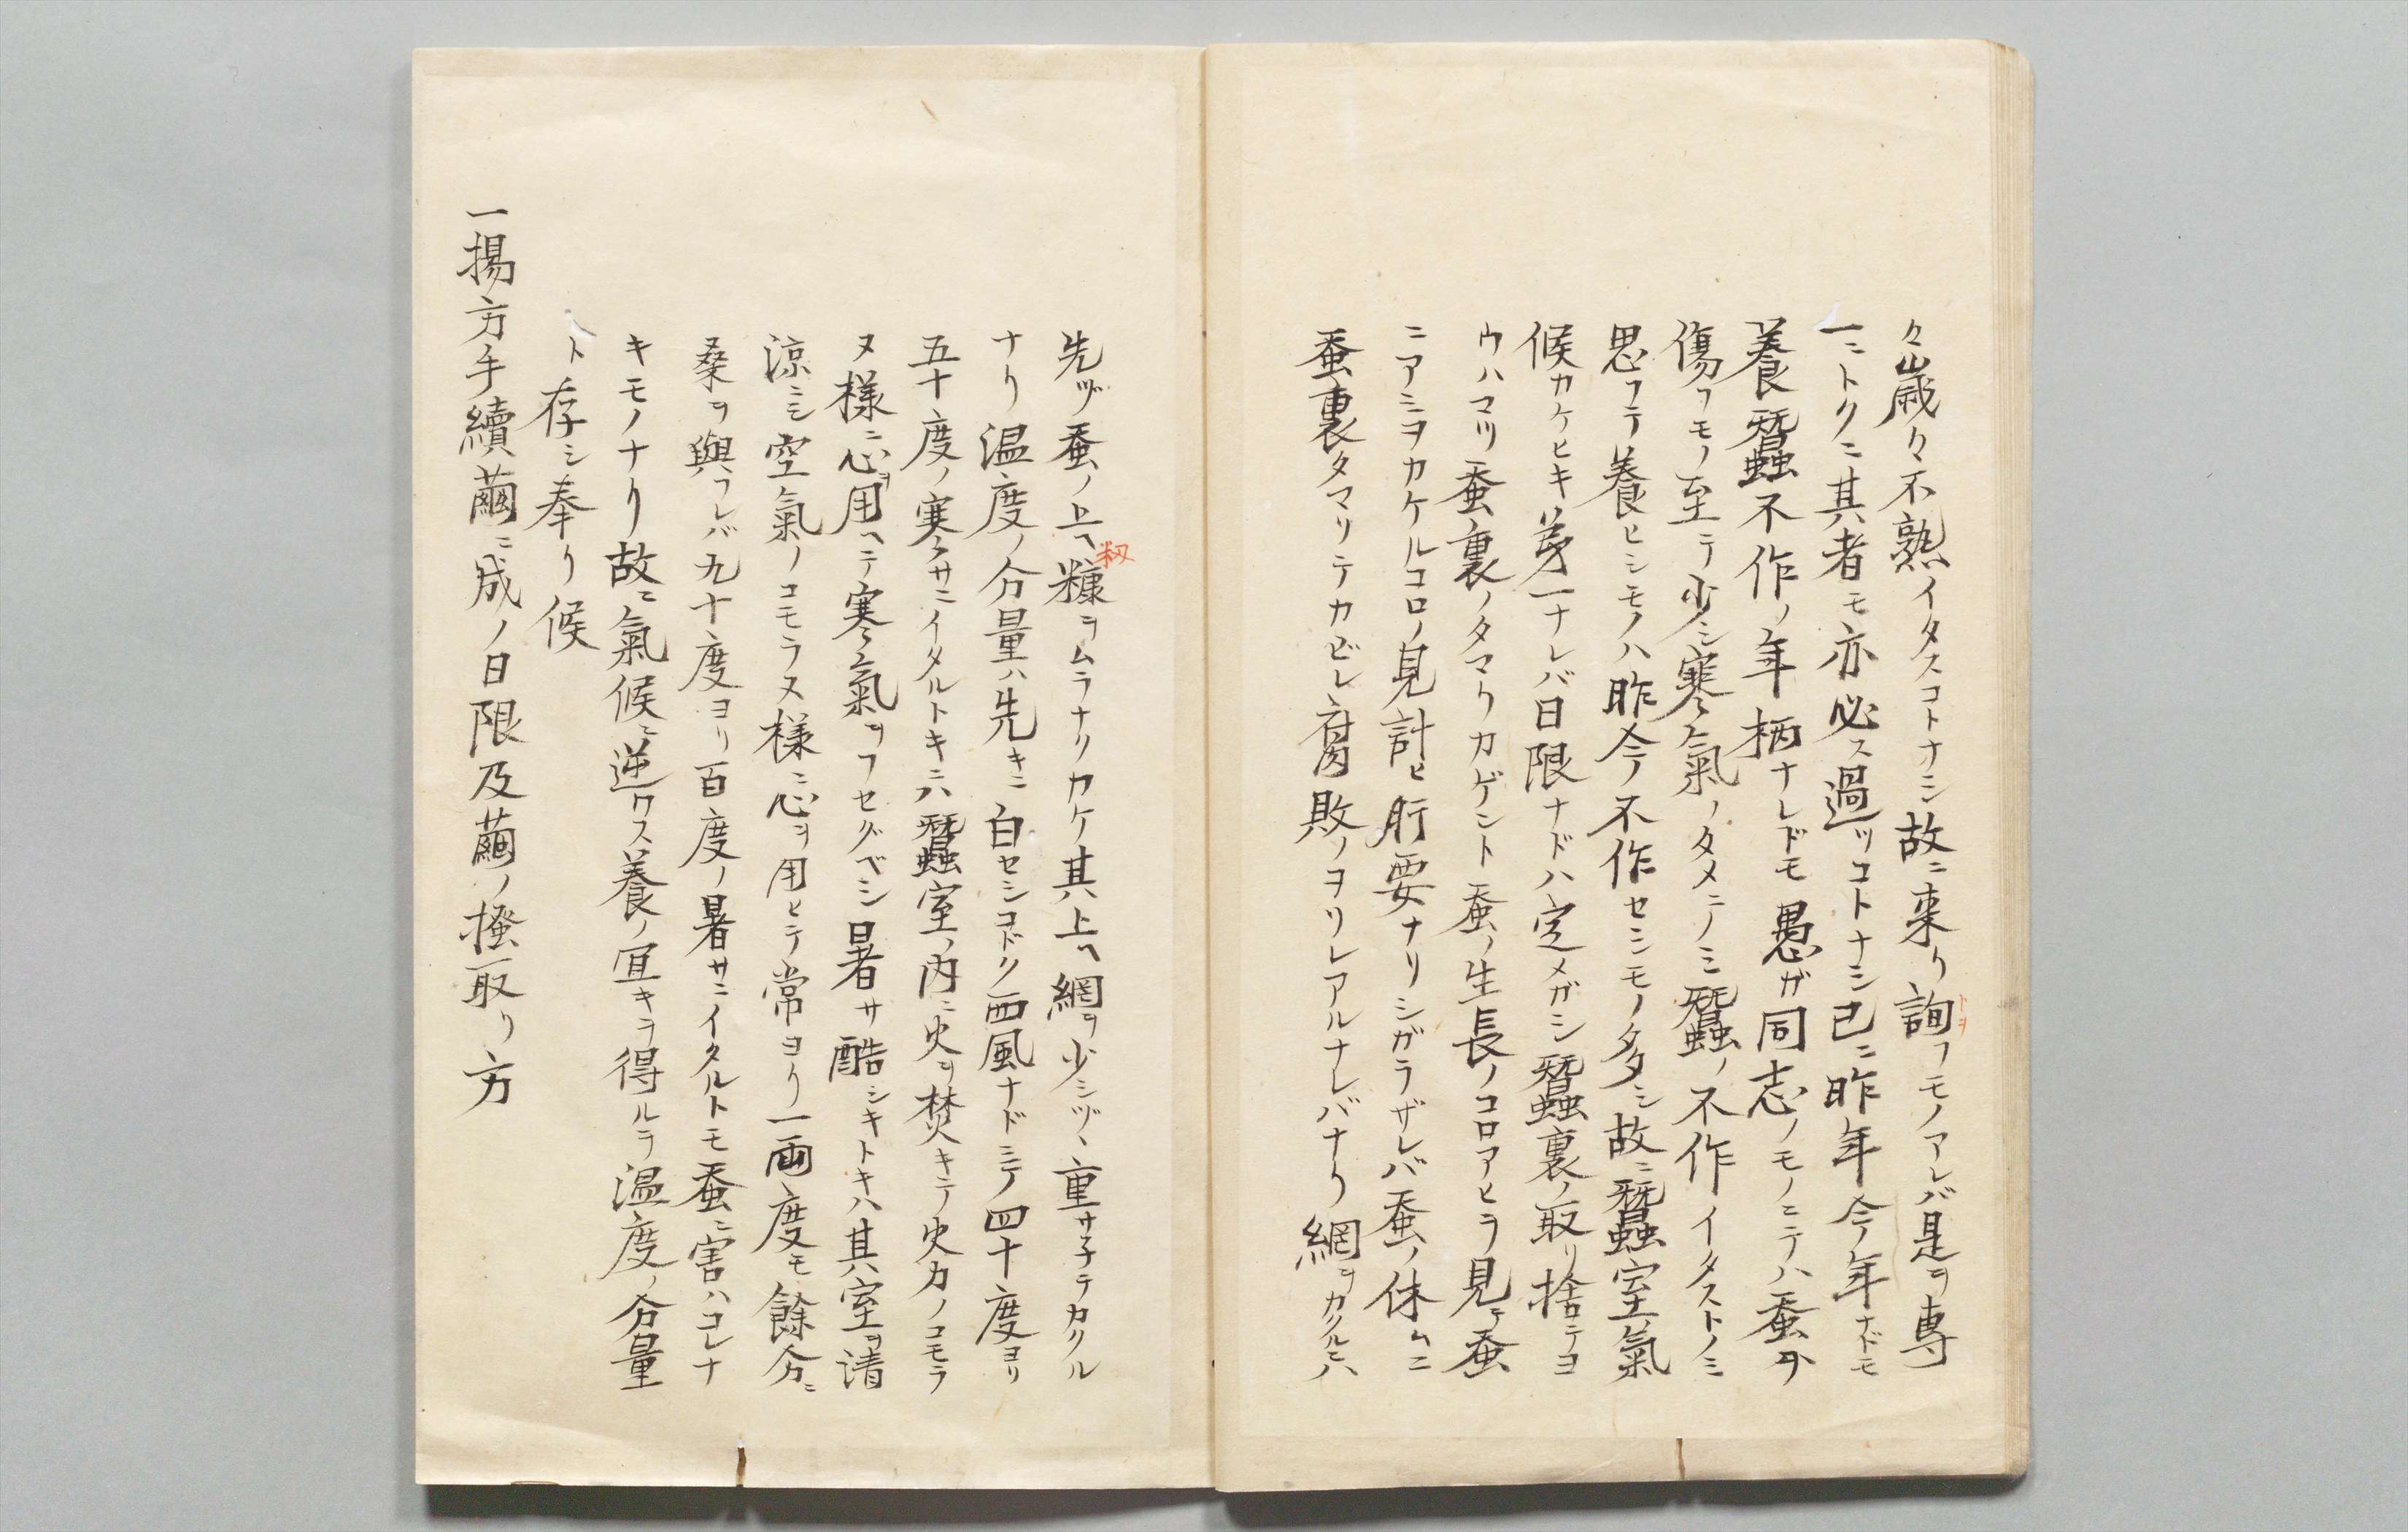 々歳々不熟イタスコトナシ故ニ来り詢フモノアレバ是ヲ専
一ニトクニ其者モ亦必ス過ツコトナシ已ニ昨年今年ナドモ
養蠶不作ノ年柄ナレドモ愚ガ同志ノモノニテハ蚕ヲ
傷フモノ至テ少シ寒氣ノタメニノミ蠶ノ不作イタストノミ
思フテ養ヒシモノハ昨今不作セシモノ多シ故ニ蠶室氣
候カケヒキ第一ナレバ日限ナドハ定メガシ蠶裏ノ取リ捨テヨ
ウハマツ蚕裏ノタマリカゲント蚕ノ生長ノコロアヒヲ見テ蚕
ニアミヲカケルコロノ見計ヒ肝要ナリシガラザレバ蚕ノ休ムニ
蚕裏タマリテカビレ腐敗ノヲソレアルナレバナリ網ヲカクルニハ
先ヅ蚕ノ上ヘ糠ヲムラナクカケ其上ヘ網ヲ少シヅヽ重サネテカクル
ナリ温度ノ分量ハ先キニ白セシコドク西風ナドニテ四十度ヨリ
五十度ノ寒サニイタルトキニハ蠶室ノ内ニ火ヲ焚キテ火力ノコモラ
ヌ様ニ心ヲ用ヘテ寒氣ヲフセグベシ暑サ酷シキトキハ其室ヲ清
涼ニシ空氣ノコモラヌ様ニ心ヲ用ヒテ常ヨリ一両度モ餘分ニ
桑ヲ與フレバ九十度ヨリ百度ノ暑サニイタルトモ蚕ニ害ハコレナ
キモノナリ故ニ氣候ニ逆ワス養ノ宜キヲ得ルヲ温度ノ分量
ト存シ奉り候
一揚方手續繭ニ成ノ日限及繭ノ掻取リ方